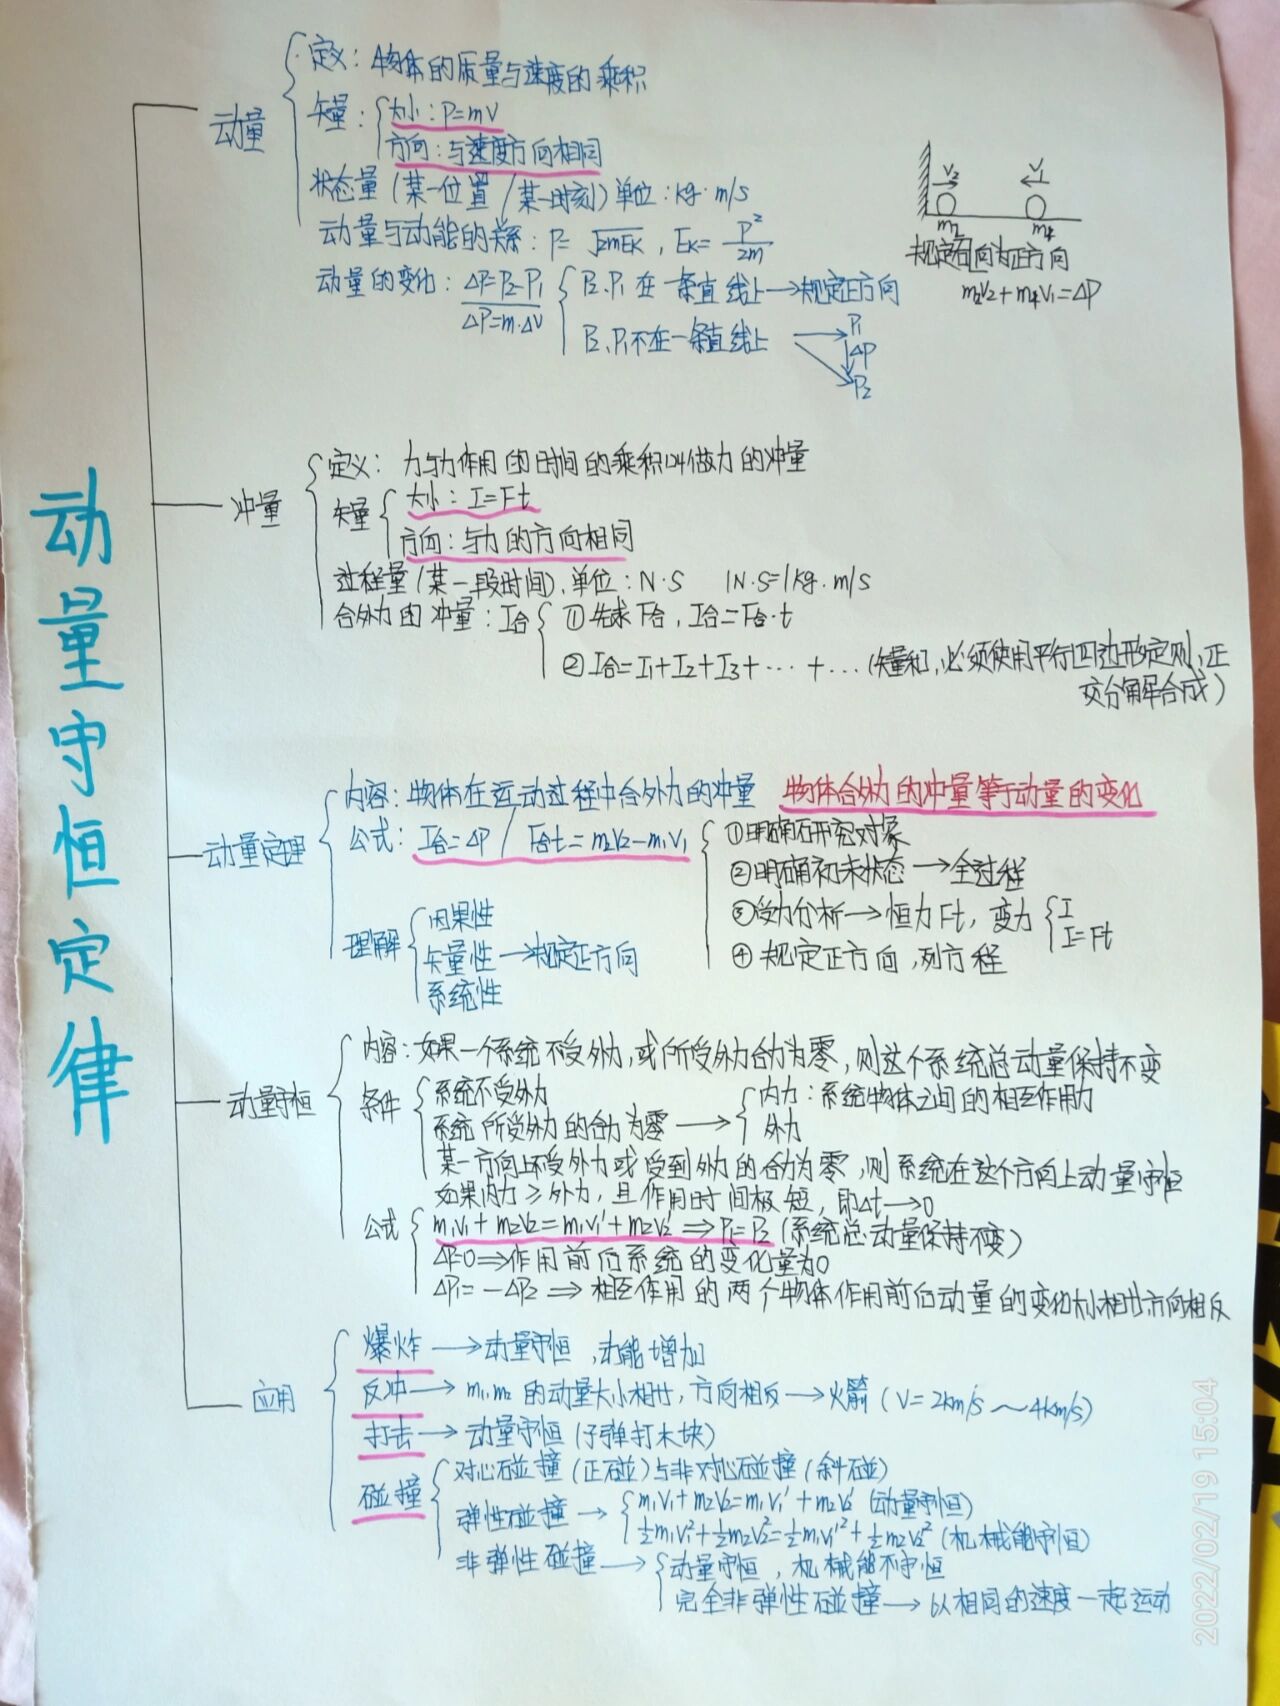 动量守恒定律
动量
定义：物体的质量与速度的乘积
矢量：
大小：P=mV
方向：与速度方向相同
状态量（某一位置/某一时刻）单位：kg·m/s
动量与动能的关系：P=√2mEK，EK=P²/2m
动量的变化：ΔP=P₂-P₁
ΔP=m·ΔV
P₂、P₁在一条直线上→规定正方向
P₂、P₁不在一条直线上
P₁
ΔP
P₂
V₂
V₁
m₂
规定右向为正方向
冲量
定义：力与力作用的时间的乘积叫做力的冲量
矢量
大小：I=Ft
方向：与力的方向相同
过程量（某一段时间），单位：N·S 1N·S=1kg·m/s
合外力的冲量：I合
①先求F合，I合=F合·t
②I合=I₁+I₂+I₃+…+…（矢量和，必须使用平行四边形定则、正
交分解合成）
动量定理
内容：物体在运动过程中合外力的冲量 物体合外力的冲量等于动量的变化
公式：I合=ΔP / F合t=m₂V₂-m₁V₁
①明确研究对象
②明确初末状态→全过程
③受力分析→恒力Ft，变力
I
I=Ft
④规定正方向，列方程
理解
因果性
矢量性→规定正方向
系统性
动量守恒
内容：如果一个系统不受外力，或所受外力合力为零，则这个系统总动量保持不变
条件
系统不受外力
系统所受外力的合力为零→
内力：系统物体之间的相互作用力
外力
某一方向上不受外力或受到外力的合力为零，则系统在这个方向上动量守恒
如果内力≥外力，且作用时间极短，即Δt→0
公式
m₁V₁+m₂V₂=m₁V₁'+m₂V₂'⇒P₁=P₂（系统总动量保持不变）
ΔP=0⇒作用前后系统的变化量为0
ΔP₁=-ΔP₂⇒相互作用的两个物体作用前后动量的变化大小相等方向相反
应用
爆炸→动量守恒，动能增加
反冲→m₁、m₂的动量大小相等，方向相反→火箭（V=2km/s～4km/s）
打击→动量守恒（子弹打木块）
碰撞
对心碰撞（正碰）与非对心碰撞（斜碰）
弹性碰撞→
m₁V₁+m₂V₂=m₁V₁'+m₂V₂'（动量守恒）
½m₁V₁²+½m₂V₂²=½m₁V₁'²+½m₂V₂'²（机械能守恒）
非弹性碰撞→
动量守恒，机械能不守恒
完全非弹性碰撞→以相同的速度一起运动
2022/02/19 15:04